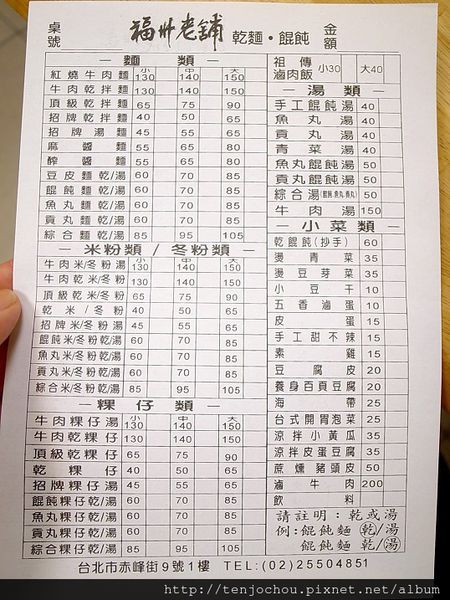 桌號 福州老舖 乾麵・餛飩 金額
— 麵類 —
小 中 大
紅燒牛肉麵 130 140 150
牛肉乾拌麵 130 140 150
頂級乾拌麵 65 75 90
招牌乾拌麵 40 50 65
招牌湯麵 45 55 65
麻醬麵 55 65 80
酢醬麵 55 65 80
豆皮麵乾/湯 60 70 85
餛飩麵乾/湯 60 70 85
魚丸麵乾/湯 60 70 85
貢丸麵乾/湯 60 70 85
綜合麵乾/湯 85 95 105
— 米粉類/冬粉類 —
小 中 大
牛肉米/冬粉湯 130 140 150
牛肉乾米/冬粉 130 140 150
頂級乾米/冬粉 65 75 90
乾米/冬粉 40 50 65
招牌米/冬粉湯 45 55 65
餛飩米/冬粉乾/湯 60 70 85
魚丸米/冬粉乾/湯 60 70 85
貢丸米/冬粉乾/湯 60 70 85
綜合米/冬粉乾/湯 85 95 105
— 粿仔類 —
小 中 大
牛肉粿仔湯 130 140 150
牛肉乾粿仔 130 140 150
頂級乾粿仔 65 75 90
乾粿仔 40 50 65
招牌粿仔湯 45 55 65
餛飩粿仔乾/湯 60 70 85
魚丸粿仔乾/湯 60 70 85
貢丸粿仔乾/湯 60 70 85
綜合粿仔乾/湯 85 95 105
祖傳滷肉飯 小30 大40
— 湯類 —
手工餛飩湯 40
魚丸湯 40
貢丸湯 40
青菜湯 40
魚丸餛飩湯 50
貢丸餛飩湯 50
綜合湯(餛飩.魚丸.貢丸) 50
牛肉湯 150
— 小菜類 —
乾餛飩(抄手) 60
燙青菜 35
燙豆芽菜 35
小豆干 10
五香滷蛋 10
皮蛋 10
手工甜不辣 15
素雞 15
豆腐皮 20
養身百頁豆腐 20
海帶 25
台式開胃泡菜 25
涼拌小黃瓜 35
涼拌皮蛋豆腐 35
蔗燻豬頭皮 50
滷牛肉 200
飲料
請註明：乾或湯
例：餛飩麵 乾/湯
餛飩麵 乾/湯
台北市赤峰街9號1樓 TEL:(02)25504851
http://tenjochou.pixnet.net/album